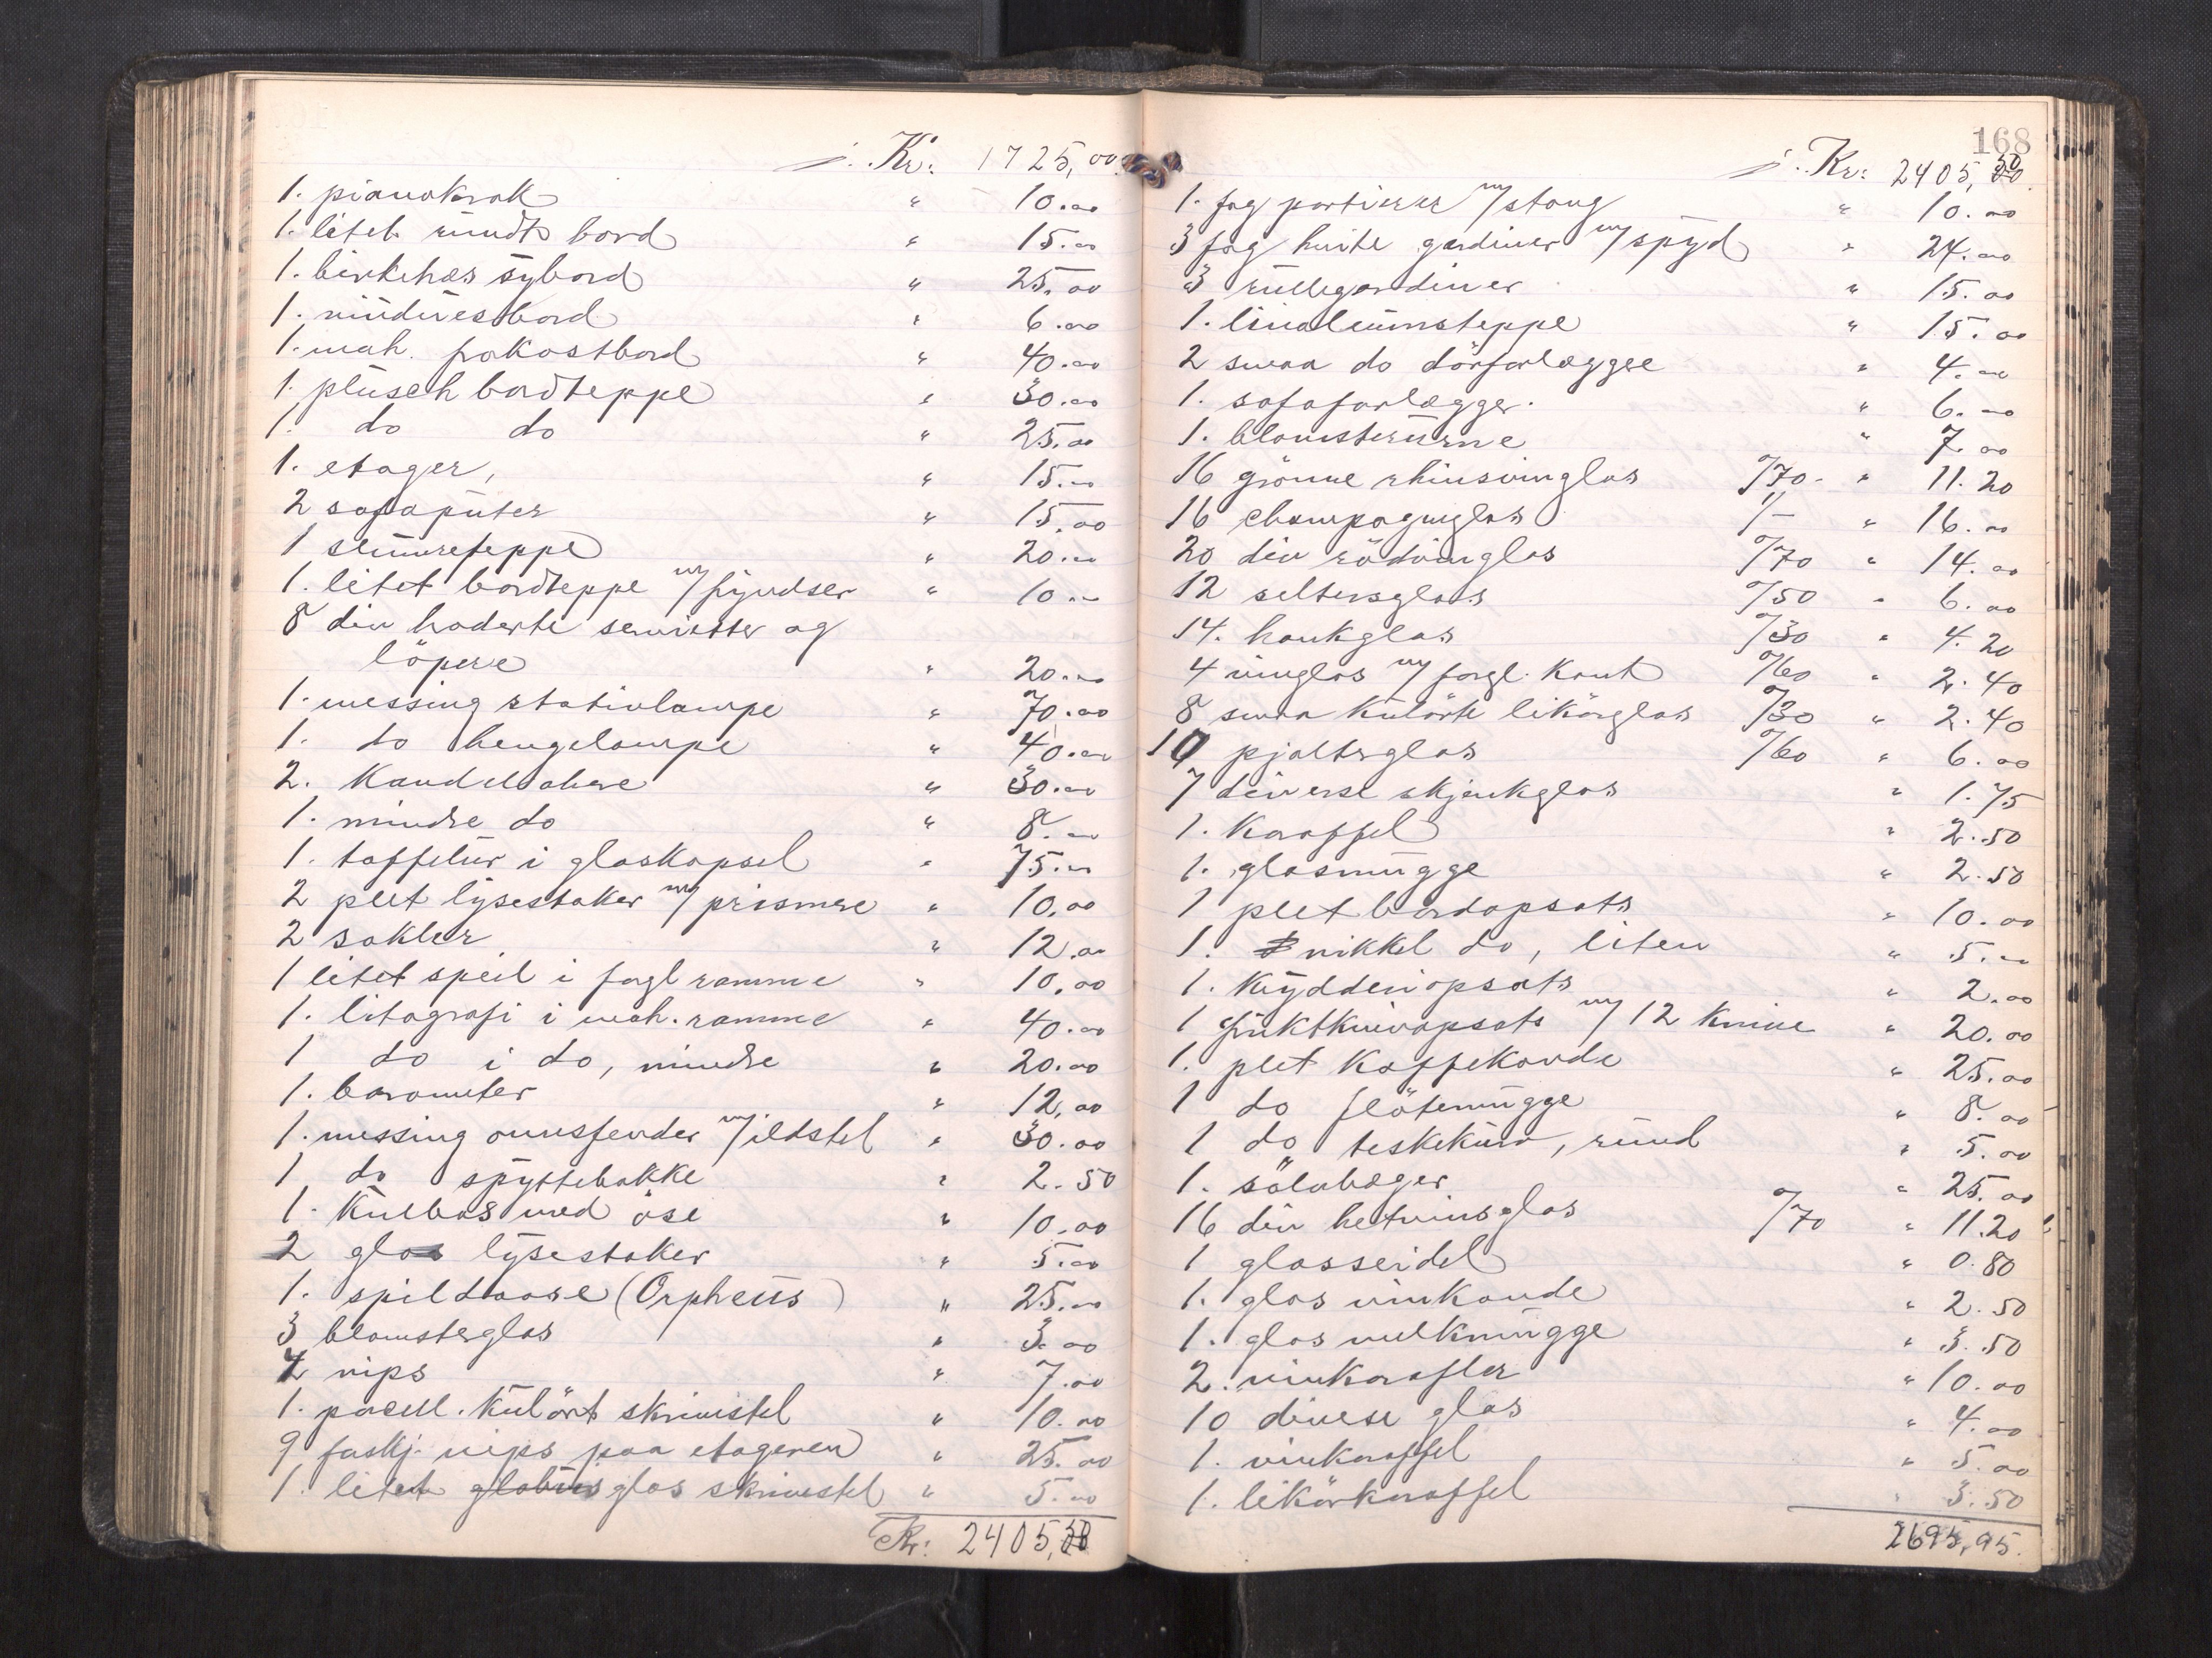 /. Kr: 1725,00.
1. pianokrak " 10.00
1. litet rundt bord " 15.00
1. birketræs sybord " 25.00
1. nüdüesbord " 6.00
1. mah. frokostbord " 40.00
1. plüsch bordteppe " 30.00
1. do do " 25.00
1. etager, " 15.00
2 sofaputer " 15.00
1 slumreteppe " 20.00
1. litet bordteppe m/ fryndser " 10.00
8 div broderte servietter og
löpere " 20.00
1. messing stativlampe " 70.00
1. do hengelampe " 40.00
2. Kandelabere " 30.00
1. mindre do " 8.00
1. taffelur i glaskapsel " 75.00
2 plet lysestaker m/ prismer " 10.00
2 sokler " 12.00
1 litet speil i forgl ramme " 10.00
1. litografi i mah. ramme " 40.00
1 do i do, mindre " 20.00
1. barometer " 12.00
1. messing ovnsfender m/ ildstel " 30.00
1 do spyttebakke " 2.50
1. Kulboks med öse " 10.00
2 glas lysestaker " 5.00
1. spildaase (Orpheus) " 25.00
3 blomsterglas " 3.00
4 nips " 7.00
1. porcel. Kulört skrivestel " 10.00
9 forskj. nips paa etageren " 25.00
1. litet globus glas skrivestel " 5.00
Kr: 2405,50
168
/. Kr: 2405,50.
1. fag portierer m/ stang " 10.00
3 fag hvite gardiner m/ spyd " 24.00
3 rullegardiner " 15.00
1. linoleumsteppe " 15.00
2 smaa do dörforlægger " 4.00
1. sofaforlægger. " 6.00
1. blomsterurne " 7.00
16 grönne rhinsvinglas º/70 - " 11.20
16 champagneglas 1/- " 16.00
20 div rödvinglas º/70 " 14.00
12 seltersglas º/50 " 6.00
14. hankglas º/30 " 4.20
4 vinglas m/ forgl. Kant º/60 " 2.40
8 smaa Kulörte likörglas º/30 " 2.40
10 pjolterglas º/60 " 6.00
7 diverse skjenkglas " 1.75
1. Karaffel " 2.50
1. glasmugge " 2.50
1 plet bordopsats " 10.00
1. nikkel do, liten " 5.00
1. Krydderiopsats " 2.00
1 fruktknivopsats m/ 12 knive " 20.00
1. plet Kaffekande " 25.00
1 do flötemugge " 8.00
1 do teskekurv, rund " 5.00
1. sölvbæger " 25.00
16 div hetvinsglas º/70 " 11.20
1 glasseidel " 0.80
1. glas vinkande " 2.50
1. glas melkmugge " 3.50
2. vinkarafler " 10.00
10 diverse glas " 4.00
1. vinkaraffel " 5.00
1. likörkaraffel " 3.50
2695,95.